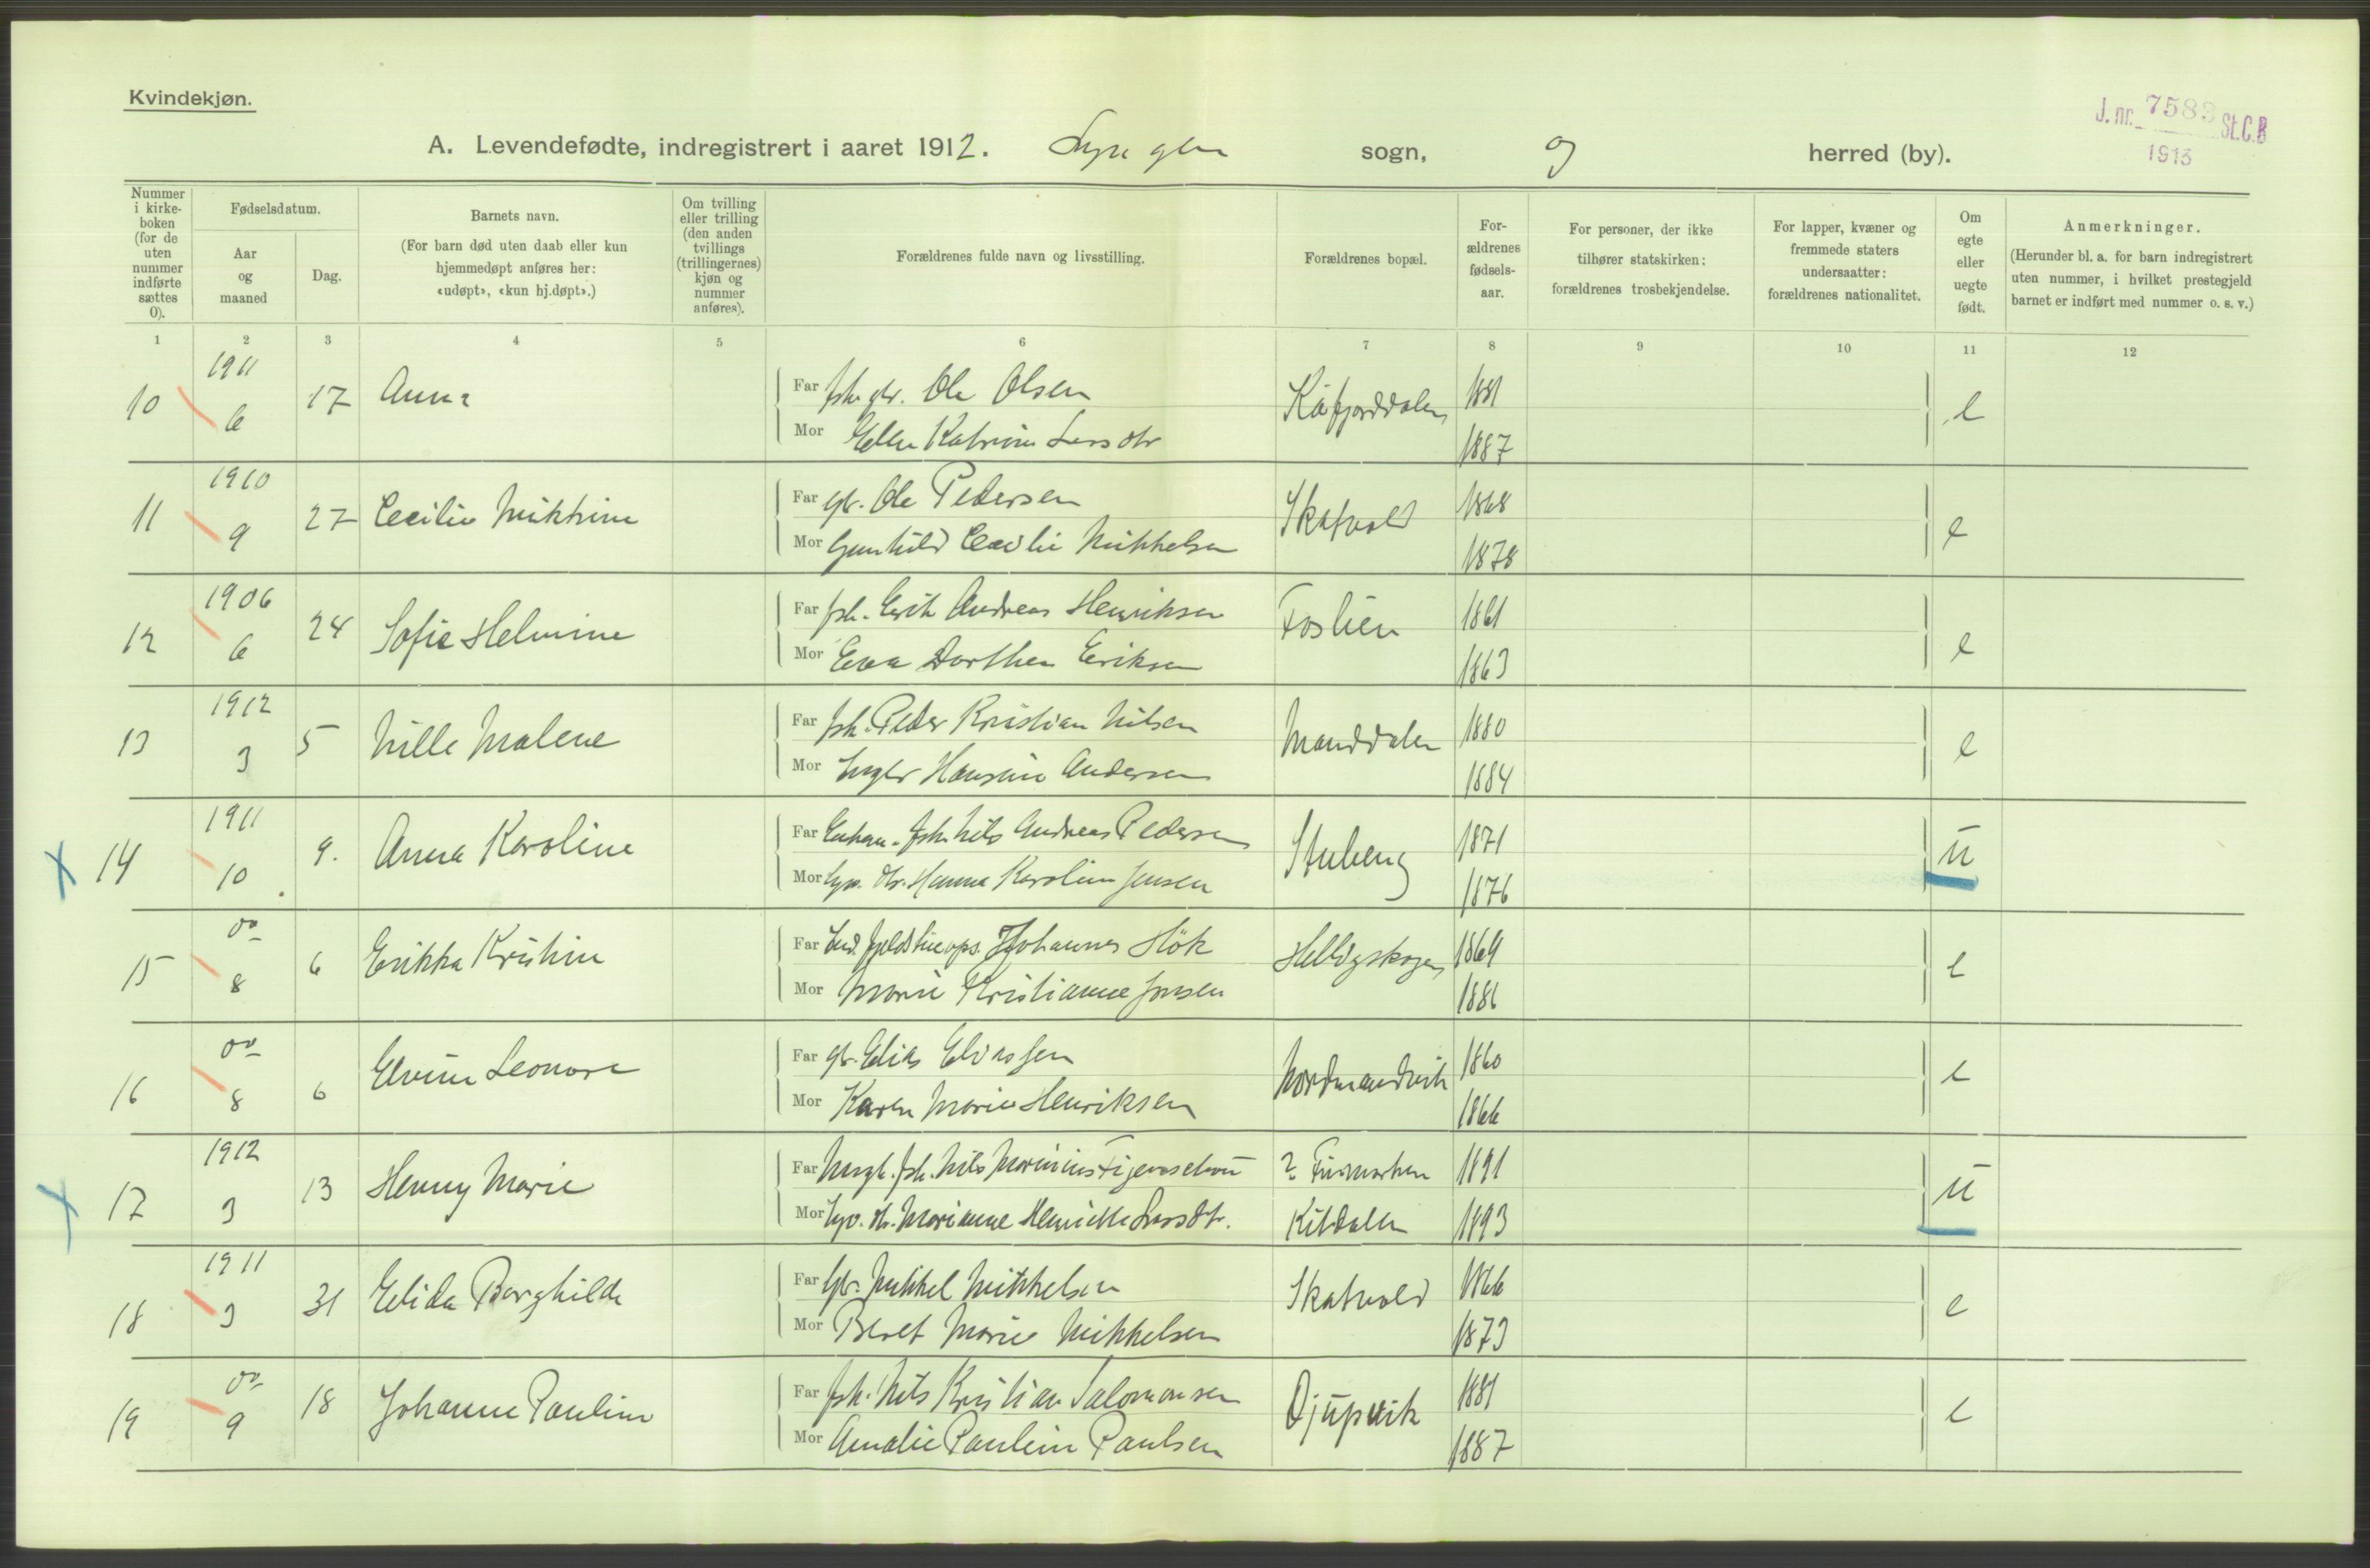 Kvindekjøn.
J. nr. 7583 St.C.B
1913
A. Levendefødte, indregistrert i aaret 1912. Lyngen sogn, og herred (by).
Nummer i kirkeboken (for de uten nummer indførte sættes 0).
Fødselsdatum.
Aar og maaned
Dag.
Barnets navn.
(For barn død uten daab eller kun hjemmedøpt anføres her: «udøpt», «kun hj.døpt».)
Om tvilling eller trilling (den anden tvillings (trillingernes) kjøn og nummer anføres).
Forældrenes fulde navn og livsstilling.
Forældrenes bopæl.
Forældrenes fødselsaar.
For personer, der ikke tilhører statskirken: forældrenes trosbekjendelse.
For lapper, kvæner og fremmede staters undersaatter: forældrenes nationalitet.
Om egte eller uegte født.
Anmerkninger.
(Herunder bl. a. for barn indregistrert uten nummer, i hvilket prestegjeld barnet er indført med nummer o. s. v.)
1 2 3 4 5 6 7 8 9 10 11 12
10 1911 6 17 Anna Far fsk. gbr. Ole Olsen Kåfjorddalen 1881 e
Mor Ellen Katrine Larsdtr 1887
11 1910 9 27 Cecilie Mikkine Far gbr. Ole Pedersen Skatvold 1868 e
Mor Gunhild Cecilie Mikkelsen 1878
12 1906 6 24 Sofie Helmine Far fsk. Erik Andreas Henriksen Foslien 1861 e
Mor Eva Dorthea Eriksen 1863
13 1912 3 5 Nille Malene Far fsk. Peder Kristian Nilsen Manddalen 1880 e
Mor Inger Hansine Andersen 1884
14 1911 10 9. Anna Karoline Far Enkem. fsk. Nils Andreas Pedersen Stubeng 1871 u
Mor Hanna Karoline Jensen 1876
15 do 8 6 Erikka Kristine Far Johannes Hök Helligskogen 1869 e
Mor Marie Kristianne Jonsen 1886
16 do 8 6 Elvine Leonore Far gbr. Elias Eliassen Nordmandvik 1860 e
Mor Karen Marie Henriksen 1866
17 1912 3 13 Henny Marie Far Ungk. fsk. Nils Marinius ? Finmarken 1891 u
Mor Marianne Henrikke Larsdtr. Kitdalen 1893
18 1911 3 31 Elida Borghilde Far Gbr. Mikkel Mikkelsen Skatvold 1866 e
Mor Beret Marie Mikkelsen 1873
19 do 9 18 Johanne Pauline Far fsk. Nils Kristian Salomonsen Djupvik 1881 e
Mor Amalie Pauline Paulsen 1887